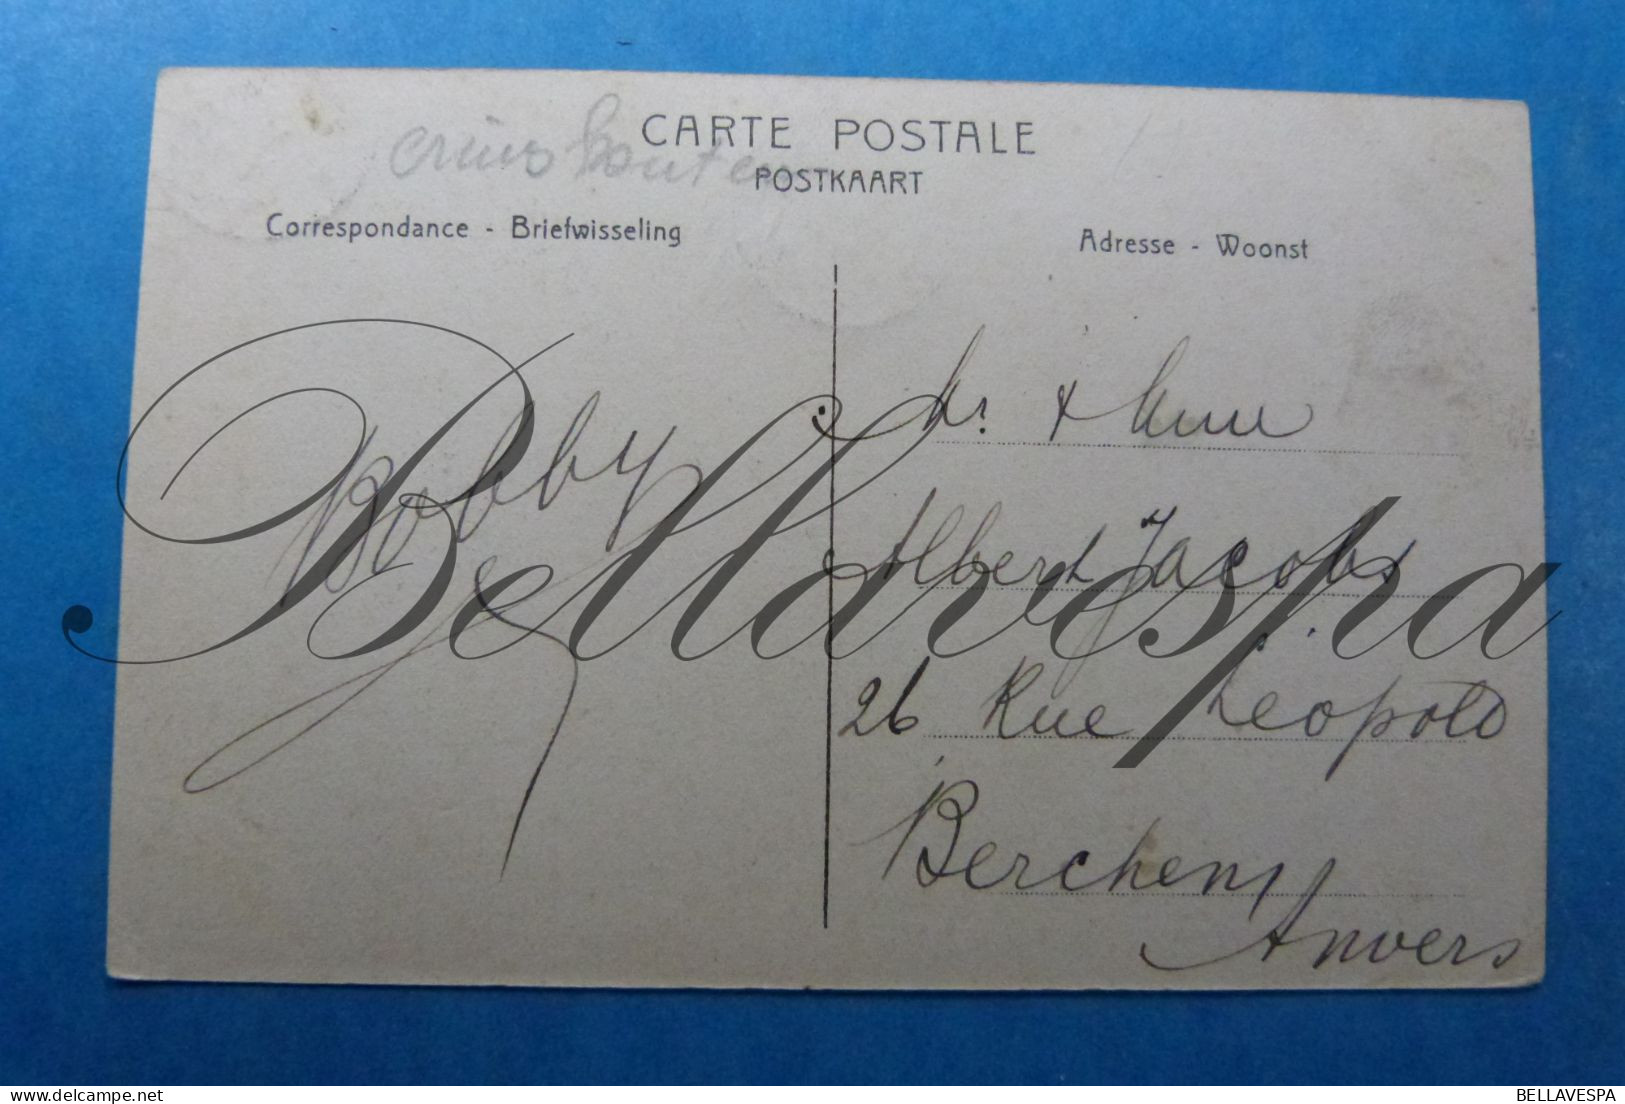 CARTE POSTALE
POSTKAART
Correspondance - Briefwisseling
Adresse - Woonst
Bobby
Mr. & Mme
Albert Jacobs
26 Rue Leopold
Berchem
Anvers
Bellavespa
BELLAVESPA